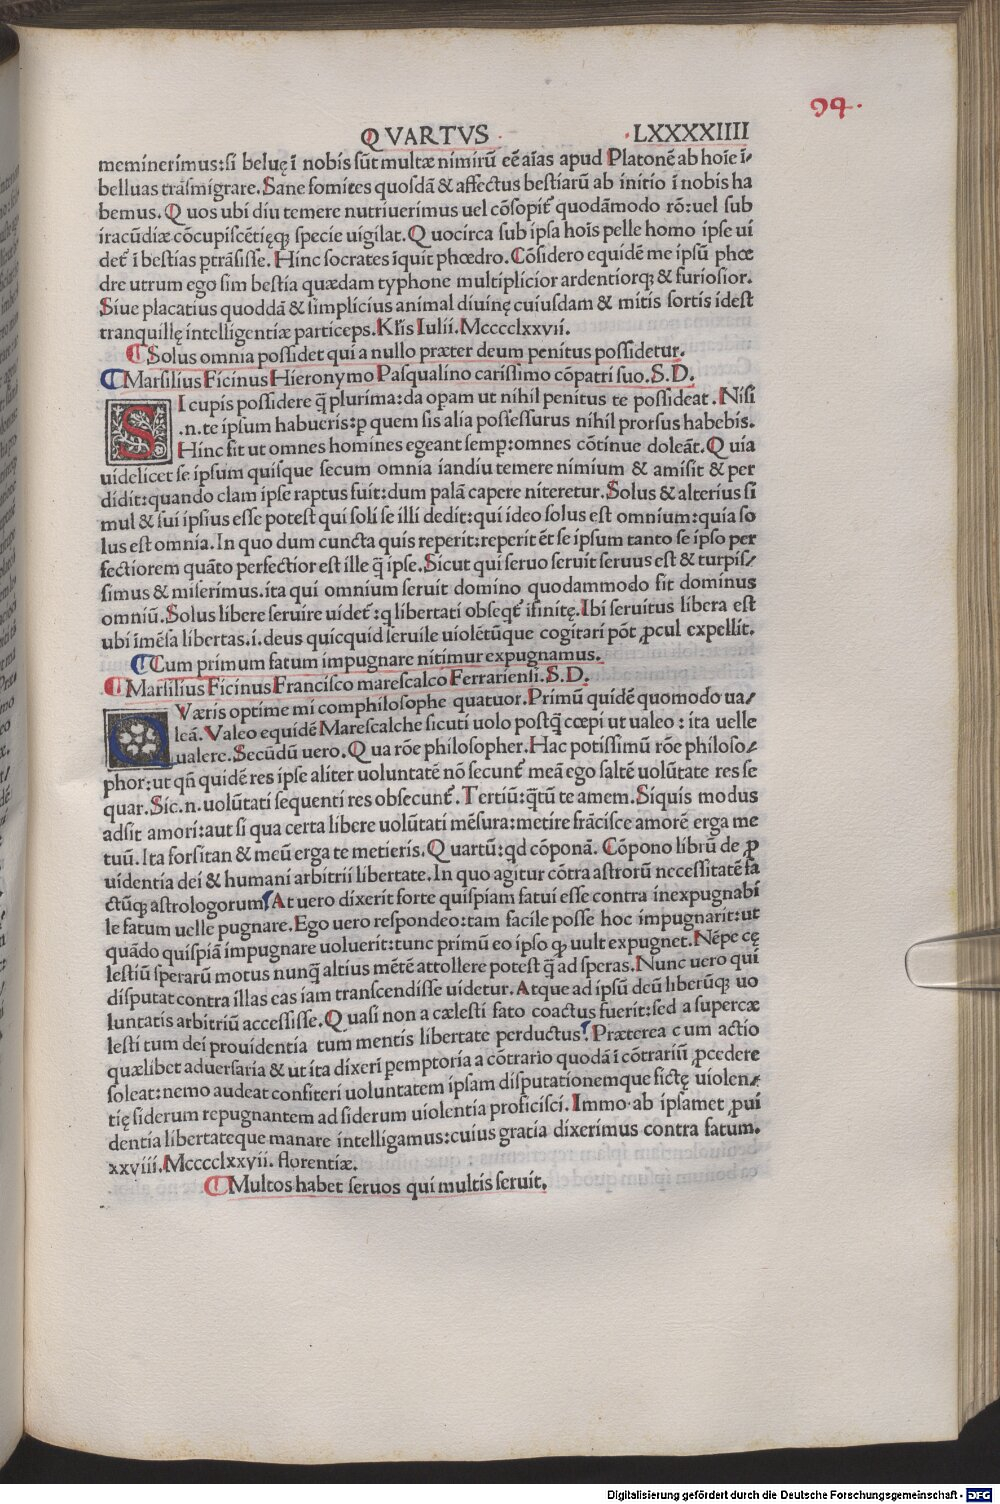 94.
QVARTVS LXXXXIIII
meminerimus:si beluę ī nobis sūt multæ nimirū eē aīas apud Platonē ab hoīe ī⸗
belluas trāsmigrare. Sane fomites quosdā & affectus bestiarū ab initio ī nobis ha
bemus. Quos ubi diu temere nutriuerimus uel cōsopit᷑ quodāmodo rō: uel sub
iracūdiæ cōcupiscētięqꝫ specie uigilat. Quocirca sub ipsa hoīs pelle homo ipse ui
det᷑ ī bestias ꝑtrāsisse. Hinc socrates īquit phœdro. Cōsidero equidē me ipsū phœ
dre utrum ego sim bestia quædam typhone multiplicior ardentiorqꝫ & furiosior.
Siue placatius quoddā & simplicius animal diuinę cuiusdam & mitis sortis idest
tranquillę intelligentiæ particeps. Kl̄is Iulii. Mcccclxxvii.
Solus omnia possidet qui a nullo præter deum penitus possidetur.
Marsilius Ficinus Hieronymo Pasqualino carissimo cōpatri suo. S. D.
SI cupis possidere q̄ plurima: da opam ut nihil penitus te possideat. Nisi
.n. te ipsum habueris: ꝑ quem sis alia possessurus nihil prorsus habebis.
Hinc fit ut omnes homines egeant semꝑ: omnes cōtinue doleāt. Quia
uidelicet se ipsum quisque secum omnia iandiu temere nimium & amisit & per
didit: quando clam ipse raptus fuit: dum palā capere niteretur. Solus & alterius si
mul & sui ipsius esse potest qui soli se illi dedit: qui ideo solus est omnium: quia so
lus est omnia. In quo dum cuncta quis reperit: reperit ēt se ipsum tanto se ipso per
fectiorem quāto perfectior est ille q̄ ipse. Sicut qui seruo seruit seruus est & turpis⸗
simus & miserimus. ita qui omnium seruit domino quodammodo fit dominus
omniū. Solus libere seruire uidet᷑: q libertati obseqt᷑ ifinitę. Ibi seruitus libera est
ubi īmēsa libertas. i. deus quicquid seruile uiolētūque cogitari pōt ꝓcul expellit.
Cum primum fatum impugnare nitimur expugnamus.
Marsilius Ficinus Francisco marescalco Ferrariensi. S. D.
QVæris optime mi comphilosophe quatuor. Primū quidē quomodo ua⸗
leā. Valeo equidē Marescalche sicuti uolo postq̄ cœpi ut ualeo: ita uelle
ualere. Secūdū uero. Qua rōe philosopher. Hac potissimū rōe philoso⸗
phor: ut qn̄ quidē res ipse aliter uoluntatē nō secunt᷑ meā ego saltē uolūtate res se
quar. Sic .n. uolūtati sequenti res obsecunt᷑. Tertiū: q̄tū te amem. Siquis modus
adsit amori: aut si qua certa libere uolūtati mēsura: metire frācisce amorē erga me
tuū. Ita forsitan & meū erga te metieris. Quartū: qd cōponā. Cōpono librū de ꝓ
uidentia dei & humani arbitrii libertate. In quo agitur cōtra astrorū necessitatē fa
ctūqꝫ astrologorum. At uero dixerit forte quispiam fatui esse contra inexpugnabi
le fatum uelle pugnare. Ego uero respondeo: tam facile posse hoc impugnari: ut
quādo quispiā impugnare uoluerit: tunc primū eo ipso ꝙ uult expugnet. Nēpe cę
lestiū sperarū motus nunq̄ altius mētē attollere potest q̄ ad speras. Nunc uero qui
disputat contra illas eas iam transcendisse uidetur. Atque ad ipsū deū liberūqꝫ uo
luntatis arbitriū accessisse. Quasi non a cælesti fato coactus fuerit: sed a supercæ
lesti tum dei prouidentia tum mentis libertate perductus. Præterea cum actio
quælibet aduersaria & ut ita dixeri pemptoria a cōtrario quodā ī cōtrariū ꝓcedere
soleat: nemo audeat confiteri uoluntatem ipsam disputationemque fictę uiolen⸗
tię siderum repugnantem ad siderum uiolentia proficisci. Immo ab ipsamet ꝓui
dentia libertateque manare intelligamus: cuius gratia dixerimus contra fatum.
xxviii. Mcccclxxvii. florentiæ.
Multos habet seruos qui multis seruit.
Digitalisierung gefördert durch die Deutsche Forschungsgemeinschaft - DFG